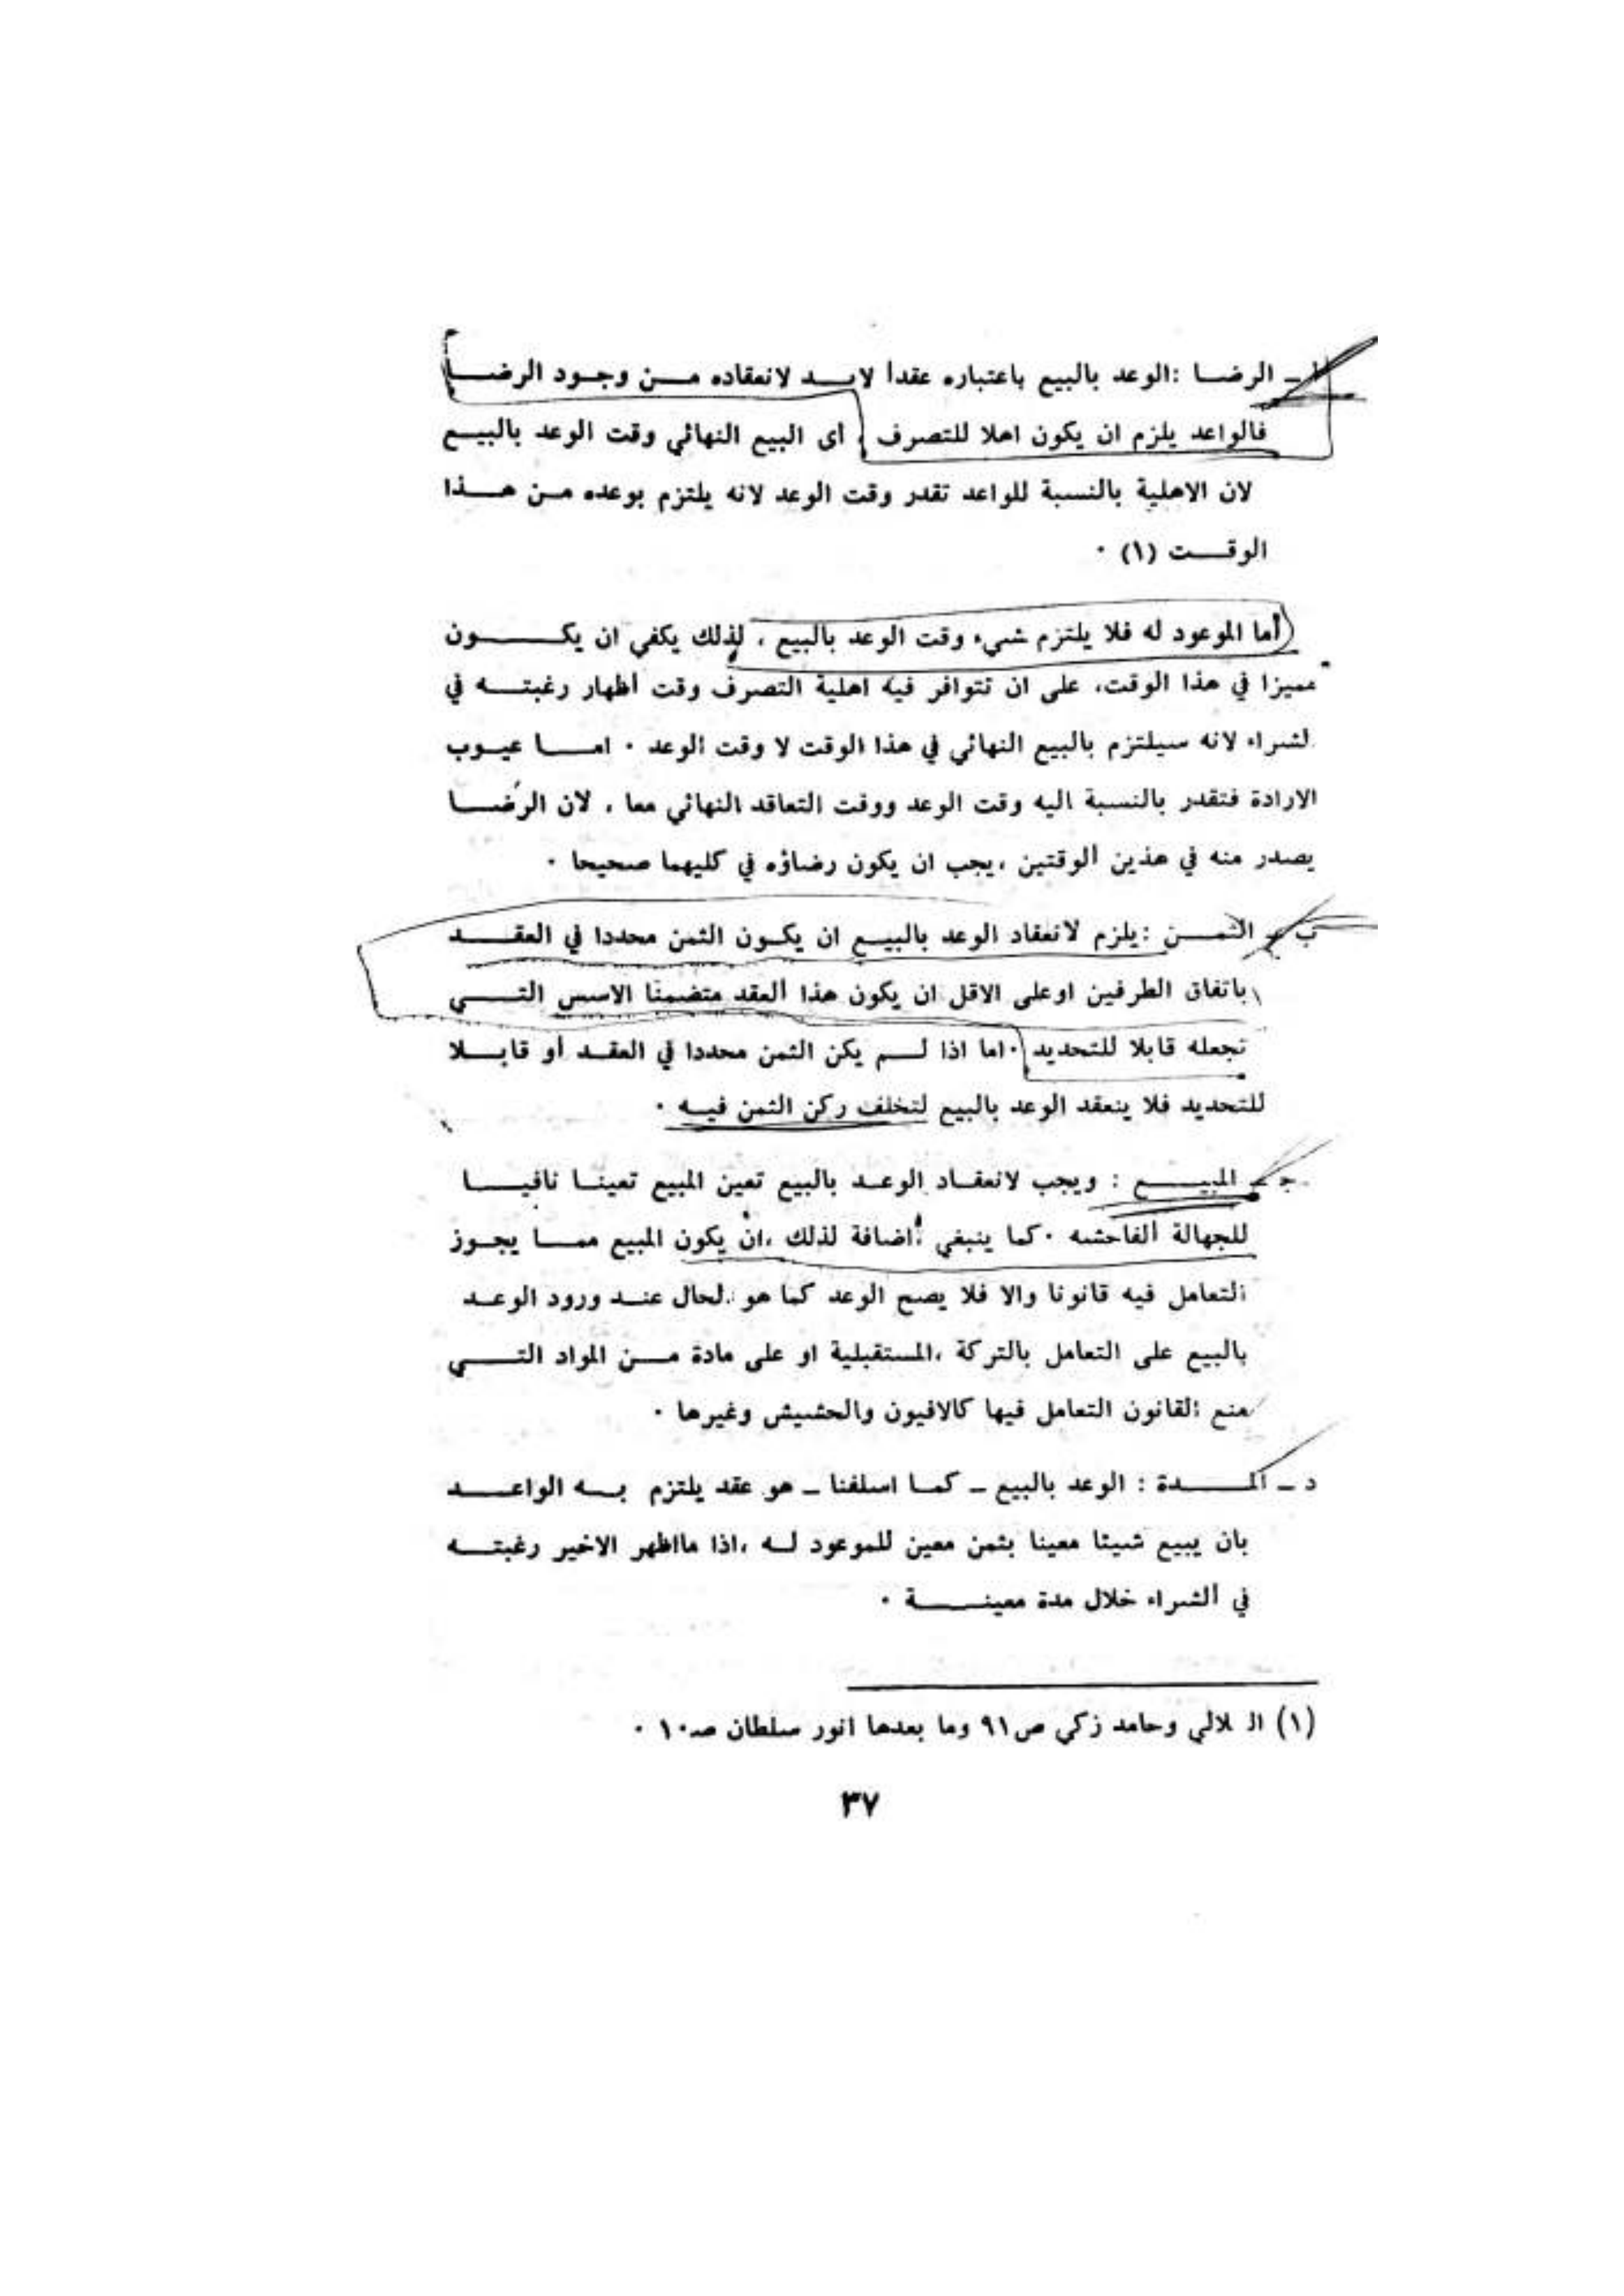 ا ـ الرضا : الوعد بالبيع باعتباره عقدا لابد لانعقاده من وجود الرضا
فالواعد يلزم ان يكون اهلا للتصرف ، اى البيع النهائي وقت الوعد بالبيع
لان الاهلية بالنسبة للواعد تقدر وقت الوعد لانه يلتزم بوعده من هذا
الوقت (١) ٠
أما الموعود له فلا يلتزم شيء وقت الوعد بالبيع ، لذلك يكفي ان يكون
مميزا في هذا الوقت، على ان تتوافر فيه اهلية التصرف وقت أظهار رغبته في
لشراء لانه سيلتزم بالبيع النهائي في هذا الوقت لا وقت الوعد ٠ اما عيوب
الارادة فتقدر بالنسبة اليه وقت الوعد ووقت التعاقد النهائي معا ، لان الرضا
يصدر منه في هذين الوقتين ،يجب ان يكون رضاؤه في كليهما صحيحا ٠
ب ـ الثمن : يلزم لانعقاد الوعد بالبيع ان يكون الثمن محددا في العقد
باتفاق الطرفين اوعلى الاقل ان يكون هذا العقد متضمنا الاسس التي
تجعله قابلا للتحديد ٠ اما اذا لم يكن الثمن محددا في العقد أو قابلا
للتحديد فلا ينعقد الوعد بالبيع لتخلف ركن الثمن فيه ٠
جـ ـ المبيع : ويجب لانعقاد الوعد بالبيع تعين المبيع تعينا نافيا
للجهالة الفاحشه ٠ كما ينبغي ،اضافة لذلك ،ان يكون المبيع مما يجوز
التعامل فيه قانونا والا فلا يصح الوعد كما هو لحال عند ورود الوعد
بالبيع على التعامل بالتركة ،المستقبلية او على مادة من المواد التي
منع القانون التعامل فيها كالافيون والحشيش وغيرها ٠
د ـ المدة : الوعد بالبيع ـ كما اسلفنا ـ هو عقد يلتزم به الواعد
بان يبيع شيئا معينا بثمن معين للموعود له ،اذا مااظهر الاخير رغبته
في الشراء خلال مدة معينة ٠
(١) الـ لالي وحامد زكي ص٩١ وما بعدها انور سلطان صـ١٠ ٠
٣٧